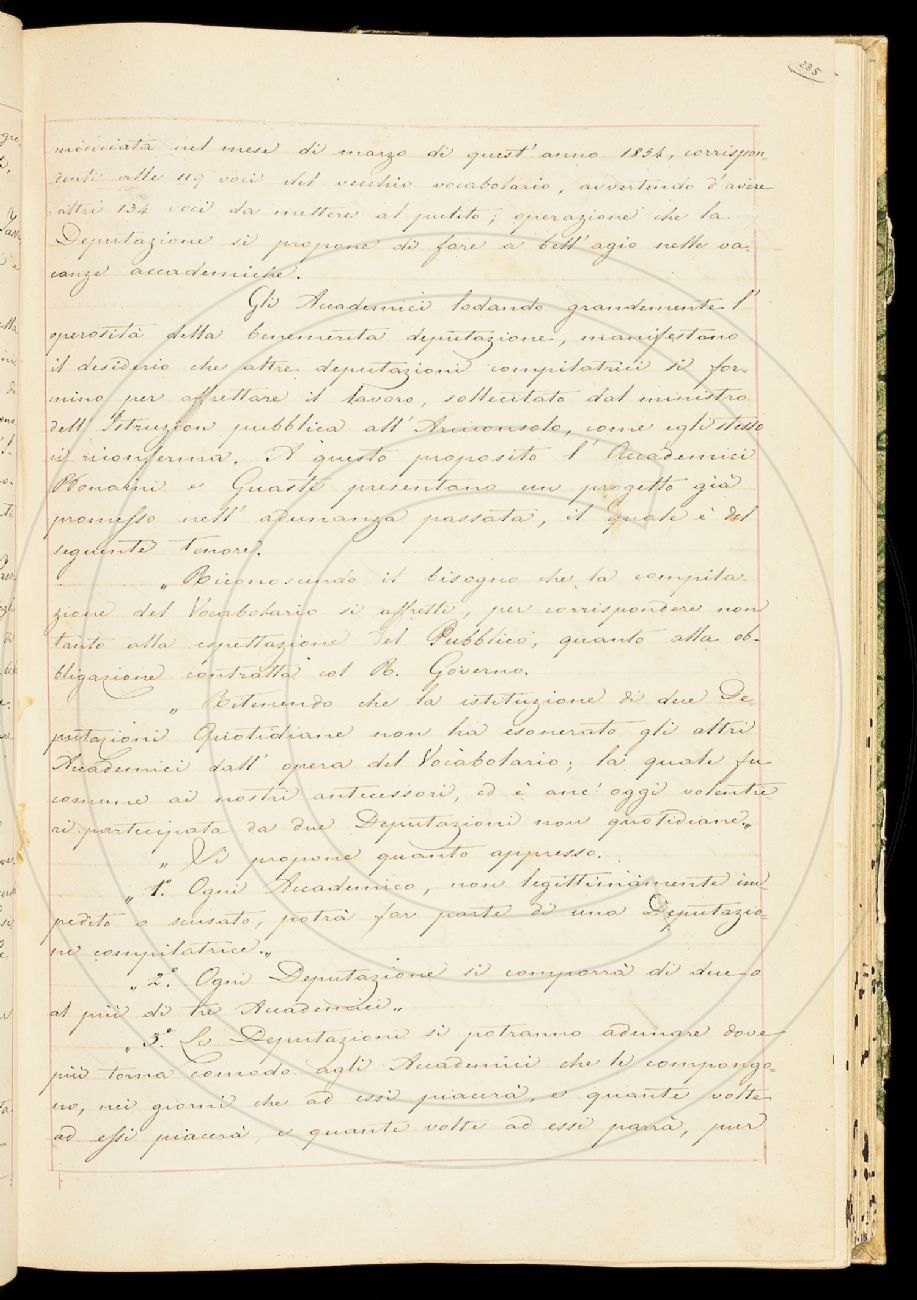 235
minciata nel mese di marzo di quest' anno 1854, corrispon,
denti alle 119 voci del vecchio vocabolario, avvertendo d'avere
altri 134 voci da mettere al pulito; operazione che la
Deputazione si propone di fare a bell' agio nelle va=
canze accademiche.
Gli Accademici lodando grandemente l'
operosità della benemerita deputazione, manifestano
il desiderio che altre deputazioni compilatrici si for=
mino per affrettare il lavoro, sollecitato dal ministro
dell' Istruzion pubblica all' Arciconsolo, come egli stesso
ci riconferma. A questo proposito l' Accademici
Bonaini e Guasti presentano un progetto già
promesso nell' adunanza passata, il quale è del
seguente tenore.
„ Riconoscendo il bisogno che la compila=
zione del Vocabolario si affretti, per corrispondere non
tanto alla espettazione del Pubblico, quanto alla ob=
bligazione contratta col R. Governo.
„ Ritenendo che la istituzione di due De=
putazioni Quotidiane non ha esonerato gli altri
Accademici dall' opera del Vocabolario; la quale fu
comune ai nostri antecessori, ed è anc' oggi volentie
ri partecipata da due Deputazioni non quotidiane„
„ Si propone quanto appresso.
„ 1.° Ogni Accademico, non legittimamente im=
pedito o scusato, potrà far parte di una Deputazio=
ne compilatrice.„
„ 2.° Ogni Deputazione si comporrà di due o
al più di tre Accademici„
„ 3.° Le Deputazioni si potranno adunare dove
più torna comodo agli Accademici che le compongo=
no, nei giorni che ad essi piacerà, e quante volte
ad essi piacerà, e quante volte ad essi parrà, pur